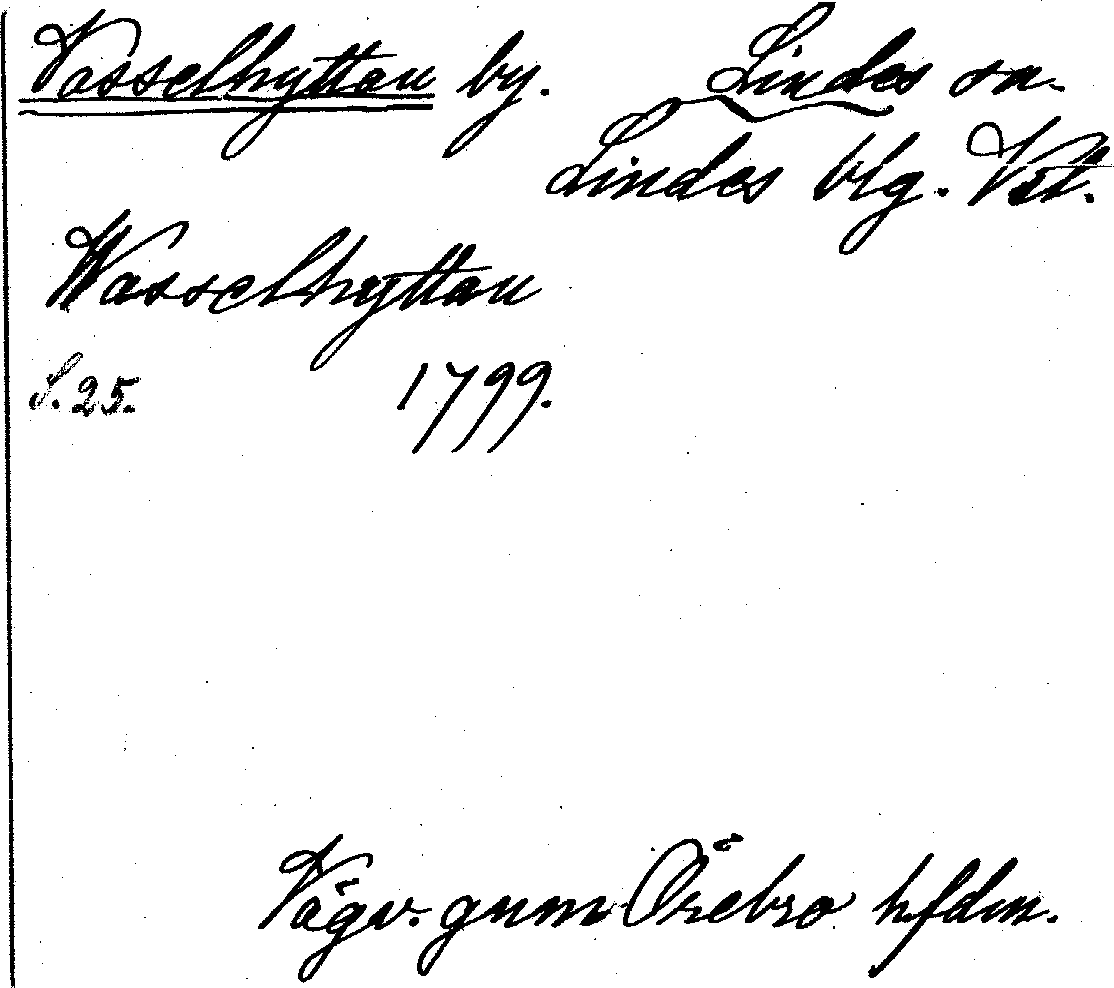 Vasselhyttan by. Lindes sn.
Lindes blg. Vstl.
Wasselhyttan
S. 25. 1799.
Vägv. gnm Örebro hfdm.